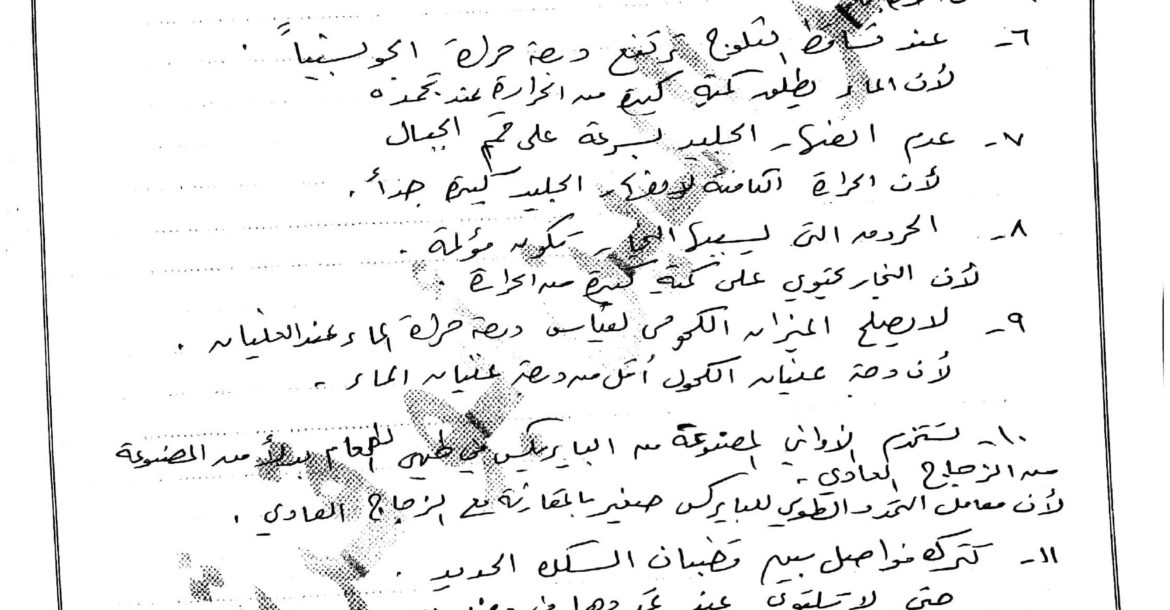 ٦- عند تساقط الثلوج ترتفع درجة حرارة الجو نسبياً .
لأن الماء يطلق كمية كبيرة من الحرارة عند تجمده
٧- عدم انصهار الجليد بسرعة على قمم الجبال
لأن الحرارة الكامنة لانصهار الجليد كبيرة جداً .
٨- الحروق التي يسببها البخار تكون مؤلمة .
لأن البخار يحتوي على كمية كبيرة من الحرارة .
٩- لا يصلح الميزان الكحولي لقياس درجة حرارة الماء عند الغليان .
لأن درجة غليان الكحول أقل من درجة غليان الماء .
١٠- تستخدم الأواني المصنوعة من البايركس في طهي الطعام بدلاً من المصنوعة
من الزجاج العادي .
لأن معامل التمدد الطولي للبايركس صغير بالمقارنة مع الزجاج العادي .
١١- تترك فواصل بين قضبان السكك الحديد .
حتى لا تلتوي عند تمددها في